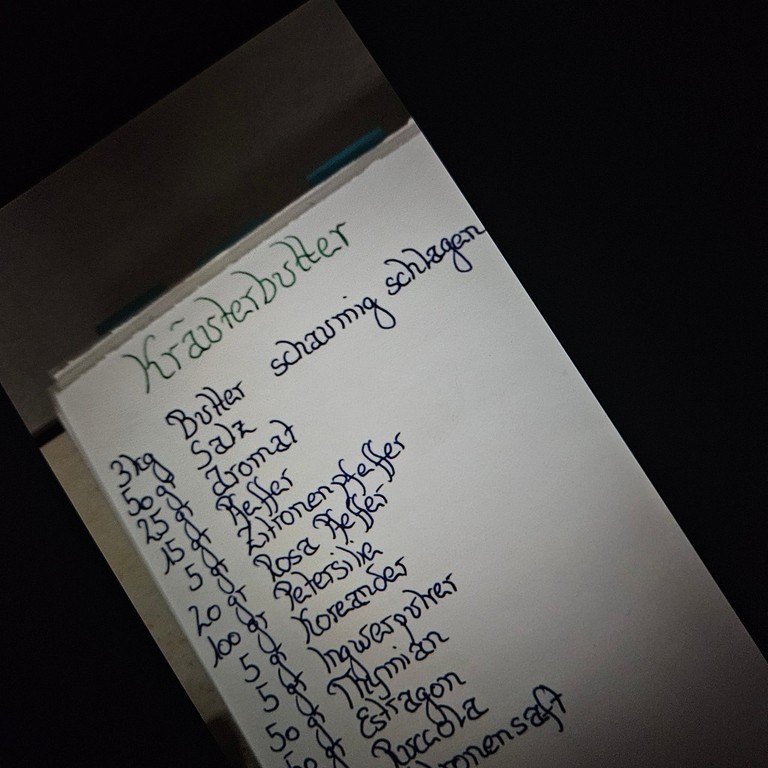 Kräuterbutter
3kg Butter schaumig schlagen
50 gr Salz
25 gr Aromat
15 gr Pfeffer
5 gr Zitronenpfeffer
20 gr Rosa Pfeffer
100 gr Petersilie
5 gr Koreander
5 gr Ingwerpulver
50 gr Thymian
gr Estragon
Ruccola